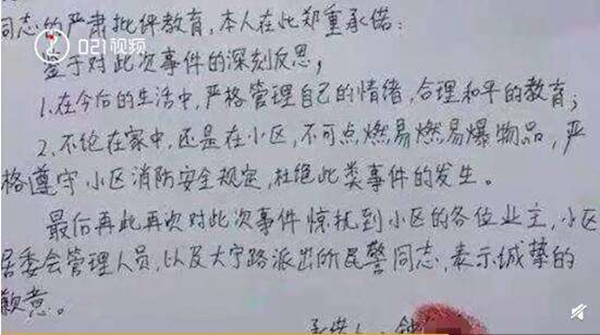 同志的严肃批评教育,本人在此郑重承诺:
021视频
鉴于对此次事件的深刻反思,
1.在今后的生活中,严格管理自己的情绪,合理和平的教育;
2.不论在家中,还是在小区,不可点燃易燃易爆物品,严
格遵守小区消防安全规定,杜绝此类事件的发生。
最后再此再次对此次事件惊扰到小区的各位业主,小区
居委会管理人员,以及大宁路派出所民警同志,表示诚挚的
歉意。
承诺人: